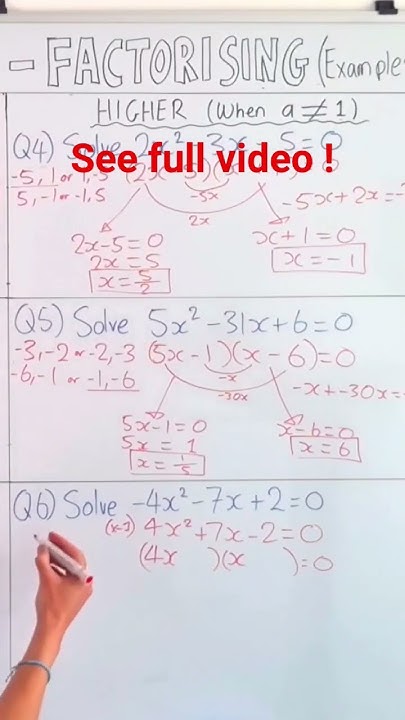 - FACTORISING (Example
HIGHER (When a ≠ 1)
Q4) Solve 2x² - 3x - 5 = 0
See full video !
-5, 1 or 1, -5
5, -1 or -1, 5
-5x
2x
-5x + 2x = -
2x - 5 = 0
2x = 5
x = 5/2
x + 1 = 0
x = -1
Q5) Solve 5x² - 31x + 6 = 0
-3, -2 or -2, -3
-6, -1 or -1, -6
(5x - 1)(x - 6) = 0
-x
-30x
-x + -30x = -
5x - 1 = 0
5x = 1
x = 1/5
x - 6 = 0
x = 6
Q6) Solve -4x² - 7x + 2 = 0
(x-1) 4x² + 7x - 2 = 0
(4x )(x ) = 0